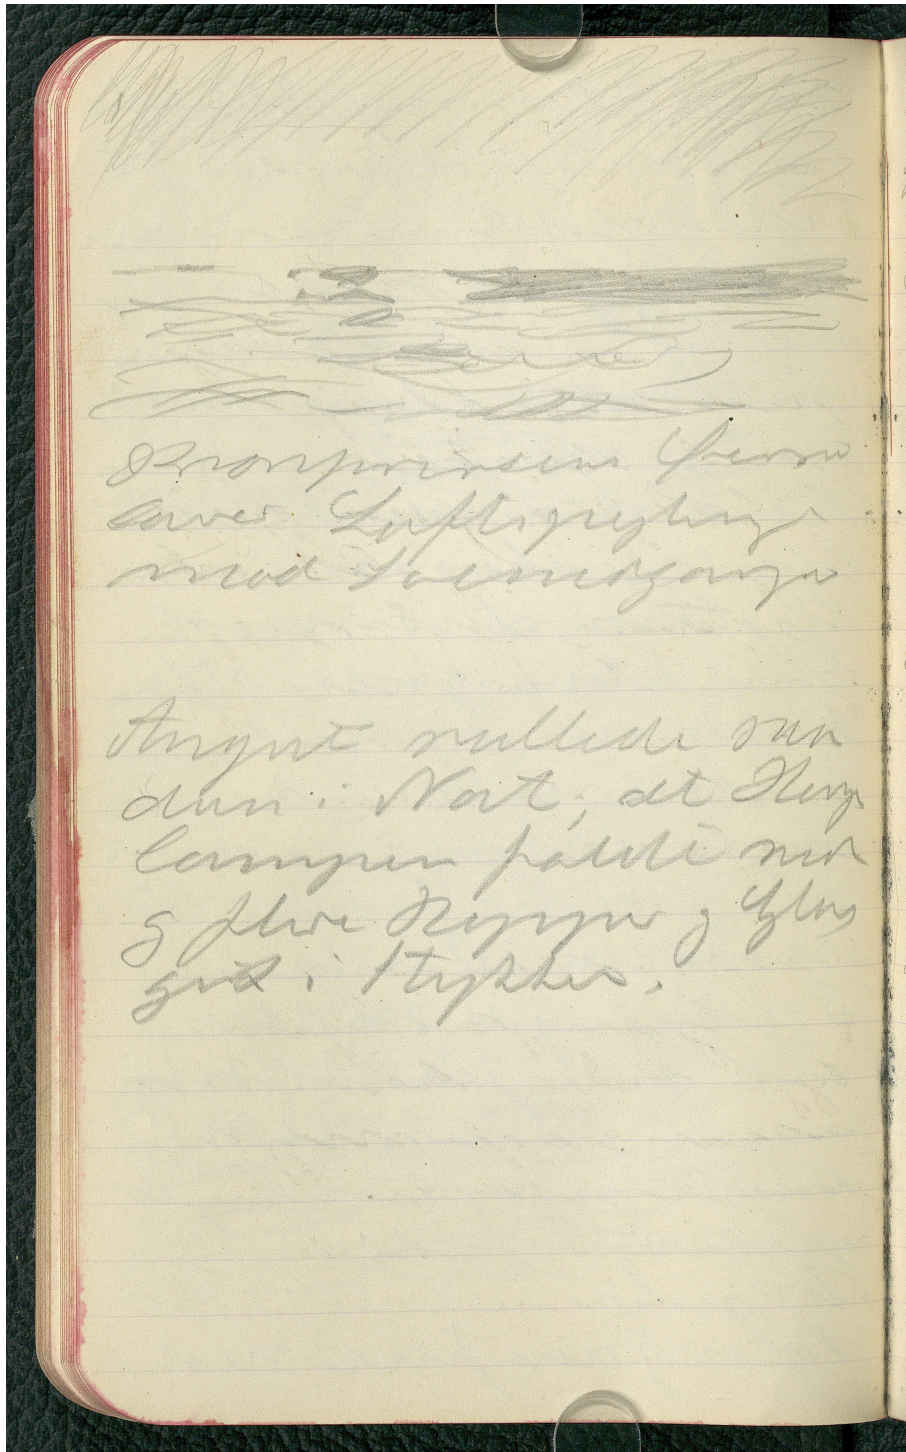 Kronprinsens Øerne
laver Luftspejling
mod Solnedgang
August rullede saa
dan i Nat, at Hænge
lampen faldt ned
og flere Kopper og Glas
gik i Stykker.